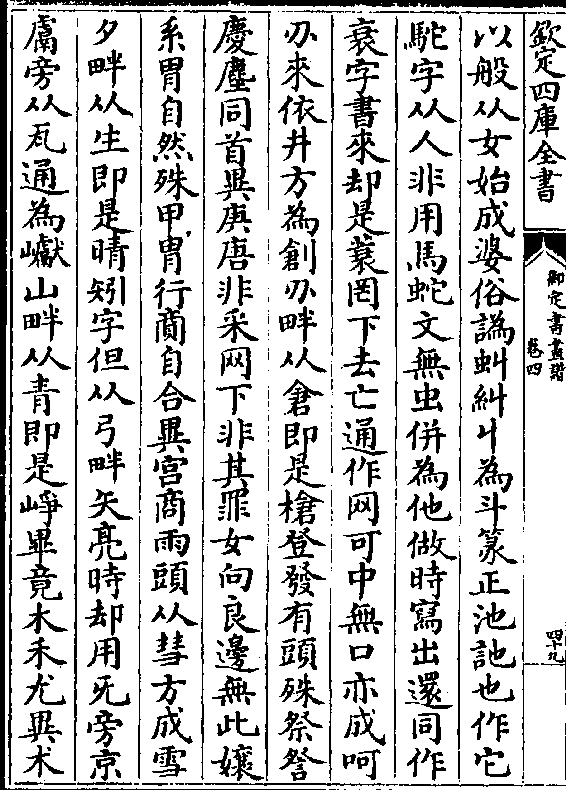 欽定四庫全書
御定書畫譜
卷四
四十九
以般从女始成婆俗譌虯糾丩為斗篆正池訑也作它
駝字从人非用馬蛇文無虫併為他做時寫出還同作
衰字書來却是蓑罔下去亡通作网可中無口亦成呵
刅來依井方為創刅畔从倉即是槍登發有頭殊祭詧
慶麈同首異庚唐非釆网下非其罪女向良邊無此孃
系胄自然殊甲冑行商自合異宮商雨頭从彗方成雪
夕畔从生即是晴矧字但从弓畔矢亮時却用旡旁京
鬳旁从瓦通為巘山畔从青即是崢畢竟木禾尢異朮